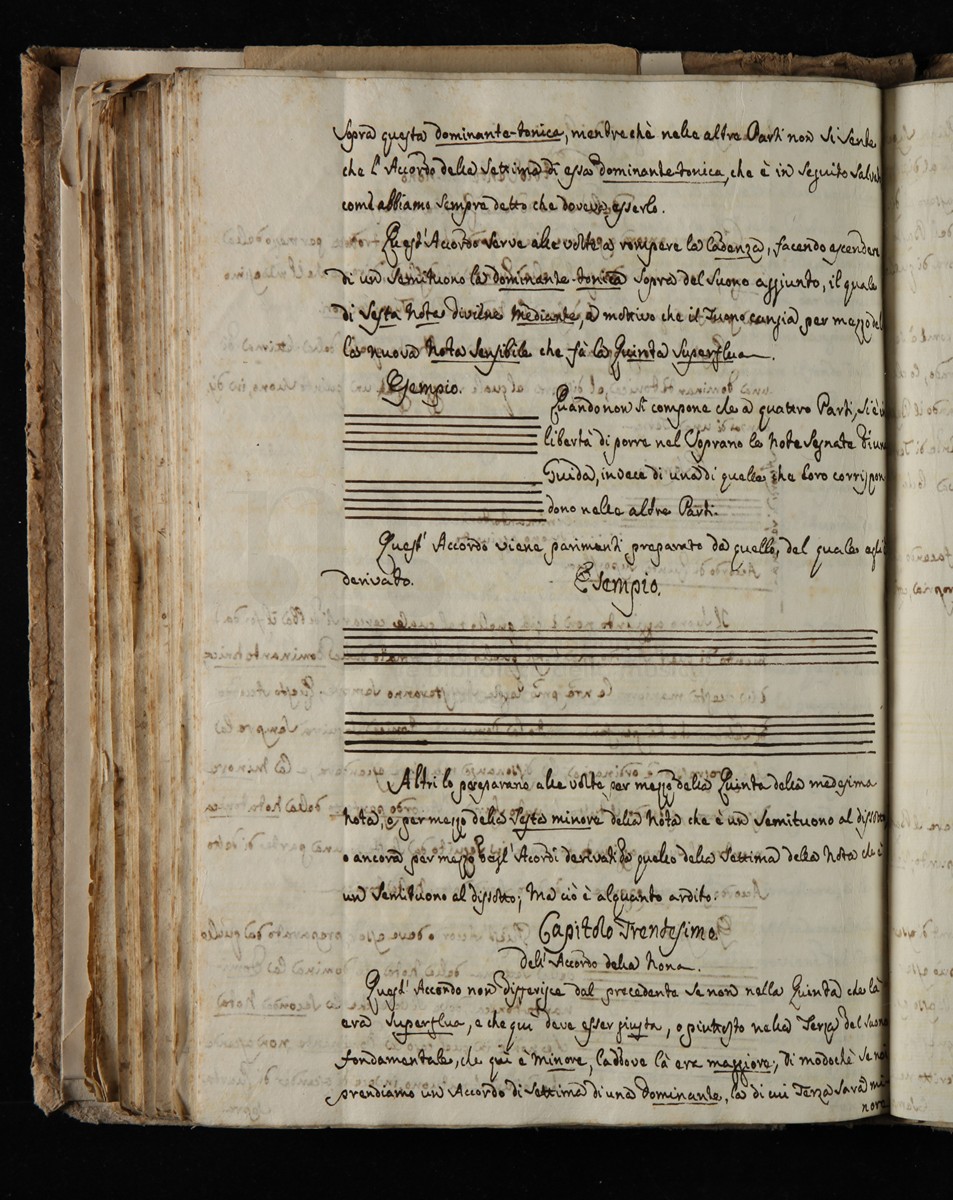 Sopra questa dominante-tonica, mentre chè nelle altre Parti non si sente
che l'Accordo della Settima di essa dominante tonica, che è in seguito salva
come abbiamo sempre detto che doveva esserlo.
Quest'Accordo serve alle volte a rompere la Cadenza, facendo ascendere
di un Semituono la dominante-tonica sopra del Suono aggiunto, il quale
di Sesta Nota diviene Mediante, a mottivo che il Tuono cangia per mezzo del
la nuova Nota Sensibile che fà la Quinta Superflua.
Esempio.
Quando non si compone che a quattro Parti, si è in
libertà di porre nel Soprano le Note Segnate d'un
Guida, invece di una di quelle che loro corrispon
dono nelle altre Parti.
Quest' Accordo viene parimenti preparato da quello, del quale egli è
derivato.
Esempio.
Altri lo preparano alle volte per mezzo della Quinta della medesima
Nota, o per mezzo della Sesta minore della Nota che è un Semituono al dissotto
o ancora per mezzo degl'Acordi derivati da quello della Settima della Nota che è
un Semituono al dissotto; Ma ciò è alquanto ardito.
Capitolo Trentesimo.
dell'Accordo della Nona.
Quest' Accordo non differisce dal precedente se non nella Quinta che là
era Superflua, e che quì deve esser giusta, o piuttosto nella Terza del Suono
fondamentale, che quì è Minore, laddove là era maggiore, di modochè se noi
prendiamo un Accordo di Settima di una dominante, la di cui Terza Sarà mi-
nore